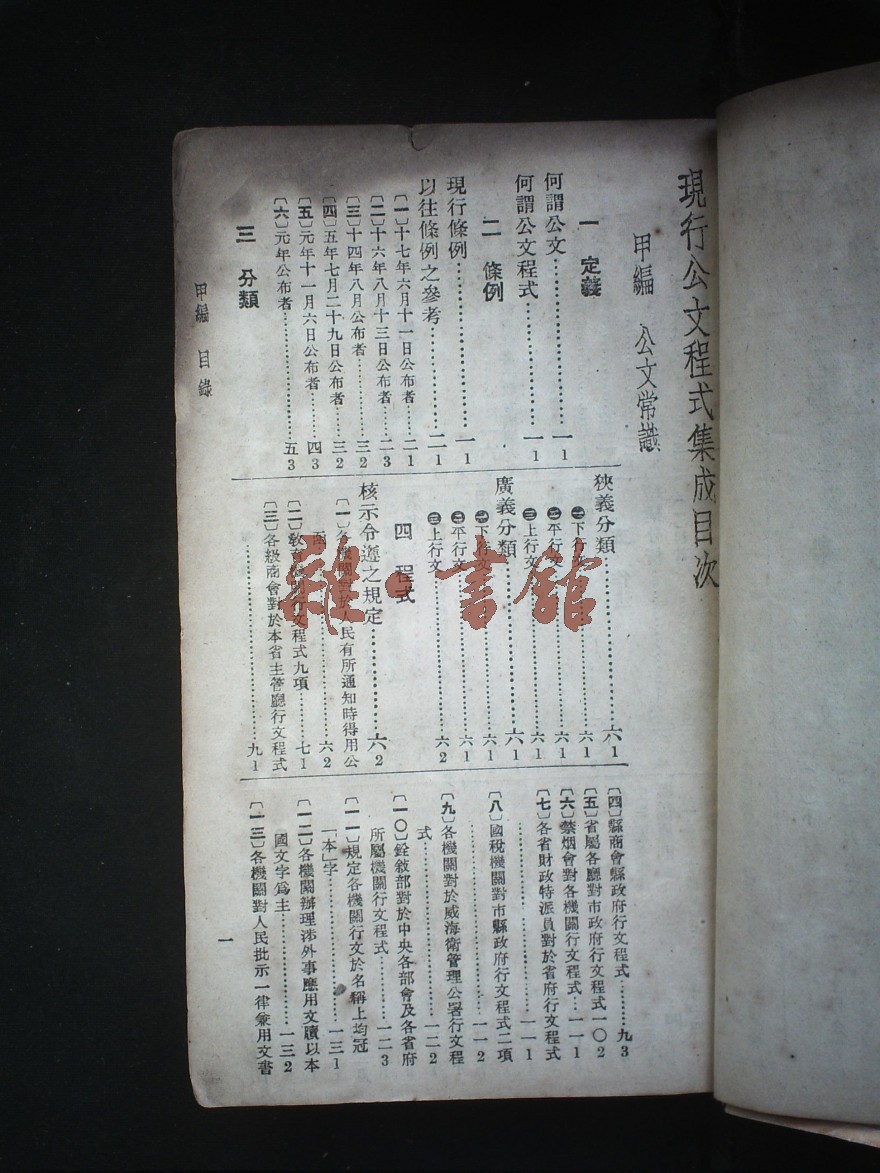 現行公文程式集成目次
甲編　公文常識
一　定義
何謂公文……一1
何謂公文程式……一1
二　條例
現行條例……一1
以往條例之參考……二1
〔一〕十七年六月十一日公布者……二1
〔二〕十六年八月十三日公布者……二3
〔三〕十四年八月公布者……三2
〔四〕五年七月二十九日公布者……三2
〔五〕元年十一月六日公布者……四3
〔六〕元年公布者……五3
三　分類
狹義分類……六1
㊀下行文……六1
㊁平行文……六1
㊂上行文……六1
廣義分類……六1
㊀下行文……六1
㊁平行文……六1
㊂上行文……六2
四　程式
核示令遞之規定……六2
〔一〕各機關對於人民有所通知時得用公
函……六2
〔二〕教育機關行文程式九項……七1
〔三〕各級商會對於本省主管廳行文程式
……九1
〔四〕縣商會縣政府行文程式……九3
〔五〕省屬各廳對市政府行文程式一〇2
〔六〕禁烟會對各機關行文程式…一一1
〔七〕各省財政特派員對於省府行文程式
……一一1
〔八〕國稅機關對市縣政府行文程式二項
……一一2
〔九〕各機關對於威海衛管理公署行文程
式……一二2
〔一〇〕銓敘部對於中央各部會及各省府
所屬機關行文程式……一二3
〔一一〕規定各機關行文於名稱上均冠
「本」字……一三1
〔一二〕各機關辦理涉外事應用文牘以本
國文字爲主……一三2
〔一三〕各機關對人民批示一律兼用文書
甲編　目錄
一
雜·書館